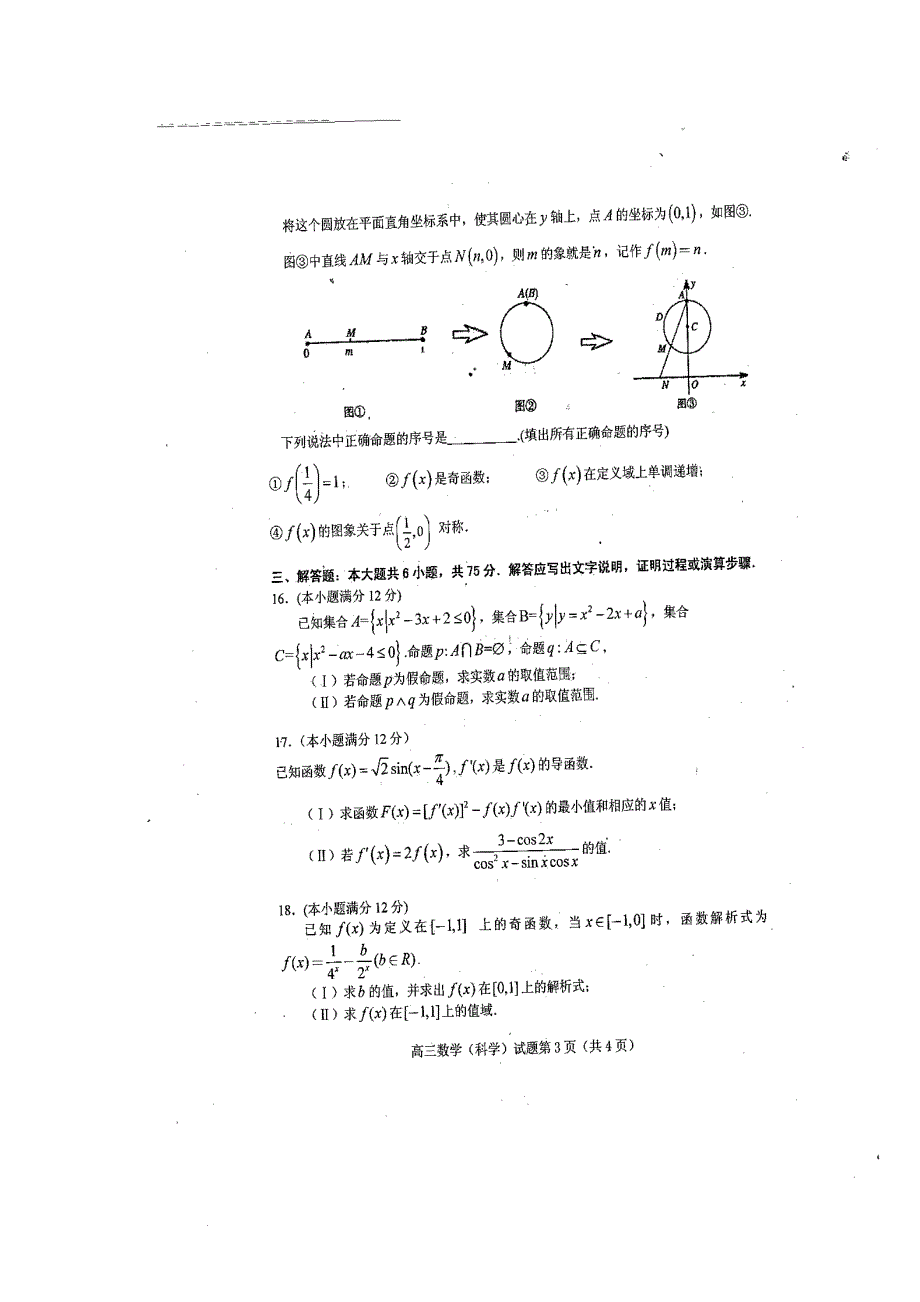 将这个圆放在平面直角坐标系中，使其圆心在y轴上，点A的坐标为(0,1)，如图③.
图③中直线AM与x轴交于点N(n,0)，则m的象就是n，记作f(m)=n.
A M B
0 m 1
图①
A(B)
M
图②
y
A
D
C
M
N O x
图③
下列说法中正确命题的序号是________.(填出所有正确命题的序号)
①f(1/4)=1; ②f(x)是奇函数; ③f(x)在定义域上单调递增;
④f(x)的图象关于点(1/2,0) 对称.
三、解答题：本大题共6小题，共75分．解答应写出文字说明，证明过程或演算步骤．
16．(本小题满分12分)
已知集合A={x|x²-3x+2≤0}，集合B={y|y=x²-2x+a}，集合
C={x|x²-ax-4≤0}.命题p:A∩B=∅，命题q:A⊆C，
(Ⅰ)若命题p为假命题，求实数a的取值范围;
(Ⅱ)若命题p∧q为假命题，求实数a的取值范围.
17.（本小题满分12分）
已知函数f(x)=√2sin(x-π/4), f'(x)是f(x)的导函数.
(Ⅰ)求函数F(x)=[f'(x)]²-f(x)f'(x)的最小值和相应的x值;
(Ⅱ)若f'(x)=2f(x)，求(3-cos2x)/(cos²x-sin x cos x)的值.
18．(本小题满分12分)
已知f(x)为定义在[-1,1]上的奇函数，当x∈[-1,0]时，函数解析式为
f(x)=1/4ˣ-b/2ˣ(b∈R).
(Ⅰ)求b的值，并求出f(x)在[0,1]上的解析式;
(Ⅱ)求f(x)在[-1,1]上的值域.
高三数学（科学）试题第3页（共4页）